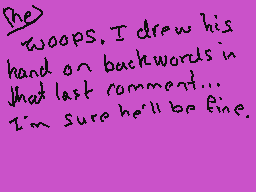 Phe
Woops. I drew his
hand on backwords in
that last comment...
I'm sure he'll be fine.